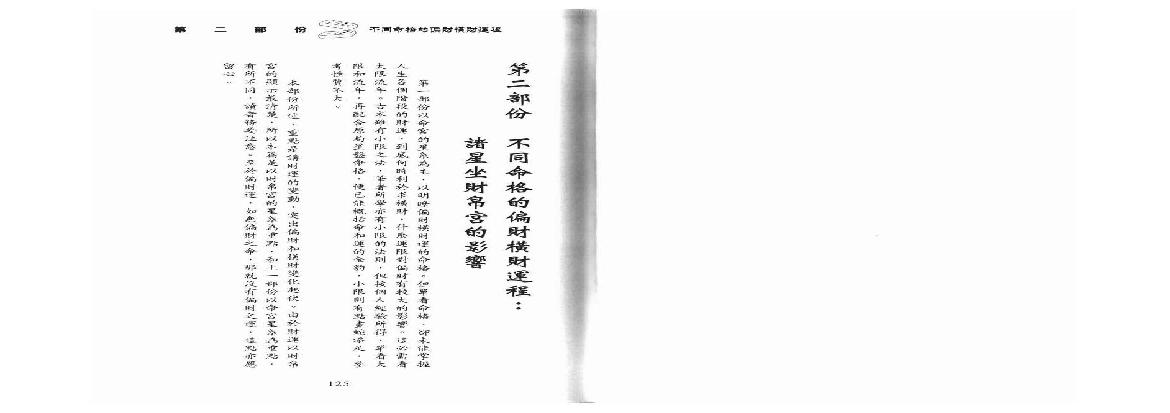 第二部份 不同命格的偏財橫財運程
第二部份 不同命格的偏財橫財運程：
諸星坐財帛宮的影響
第一部份以命宮的星系為主，以明瞭偏財橫財運的命格。但單看命格，卻未能掌握
人生各個階段的財運，到底何時利於求橫財，什麼運限對偏財有較大的影響。這必需看
大限流年。古來雖有小限之法，筆者所學亦有小限的法則，但按個人經驗所得，單看大
限和流年，再配合原局星盤命格，便已能概括命和運的全豹，小限則有點畫蛇添足，參
考性質不大。
本部份所述，重點是講財運的變動，突出偏財和橫財變化起伏。由於財運以財帛
宮的顯示最清楚，所以本篇是以財帛宮的星系為重點，和上一部份以命宮星系為重點，
有所不同，讀者務要注意。至於偏財運，如無偏財之命，那就沒有偏財之運，這點亦應
留心。
125